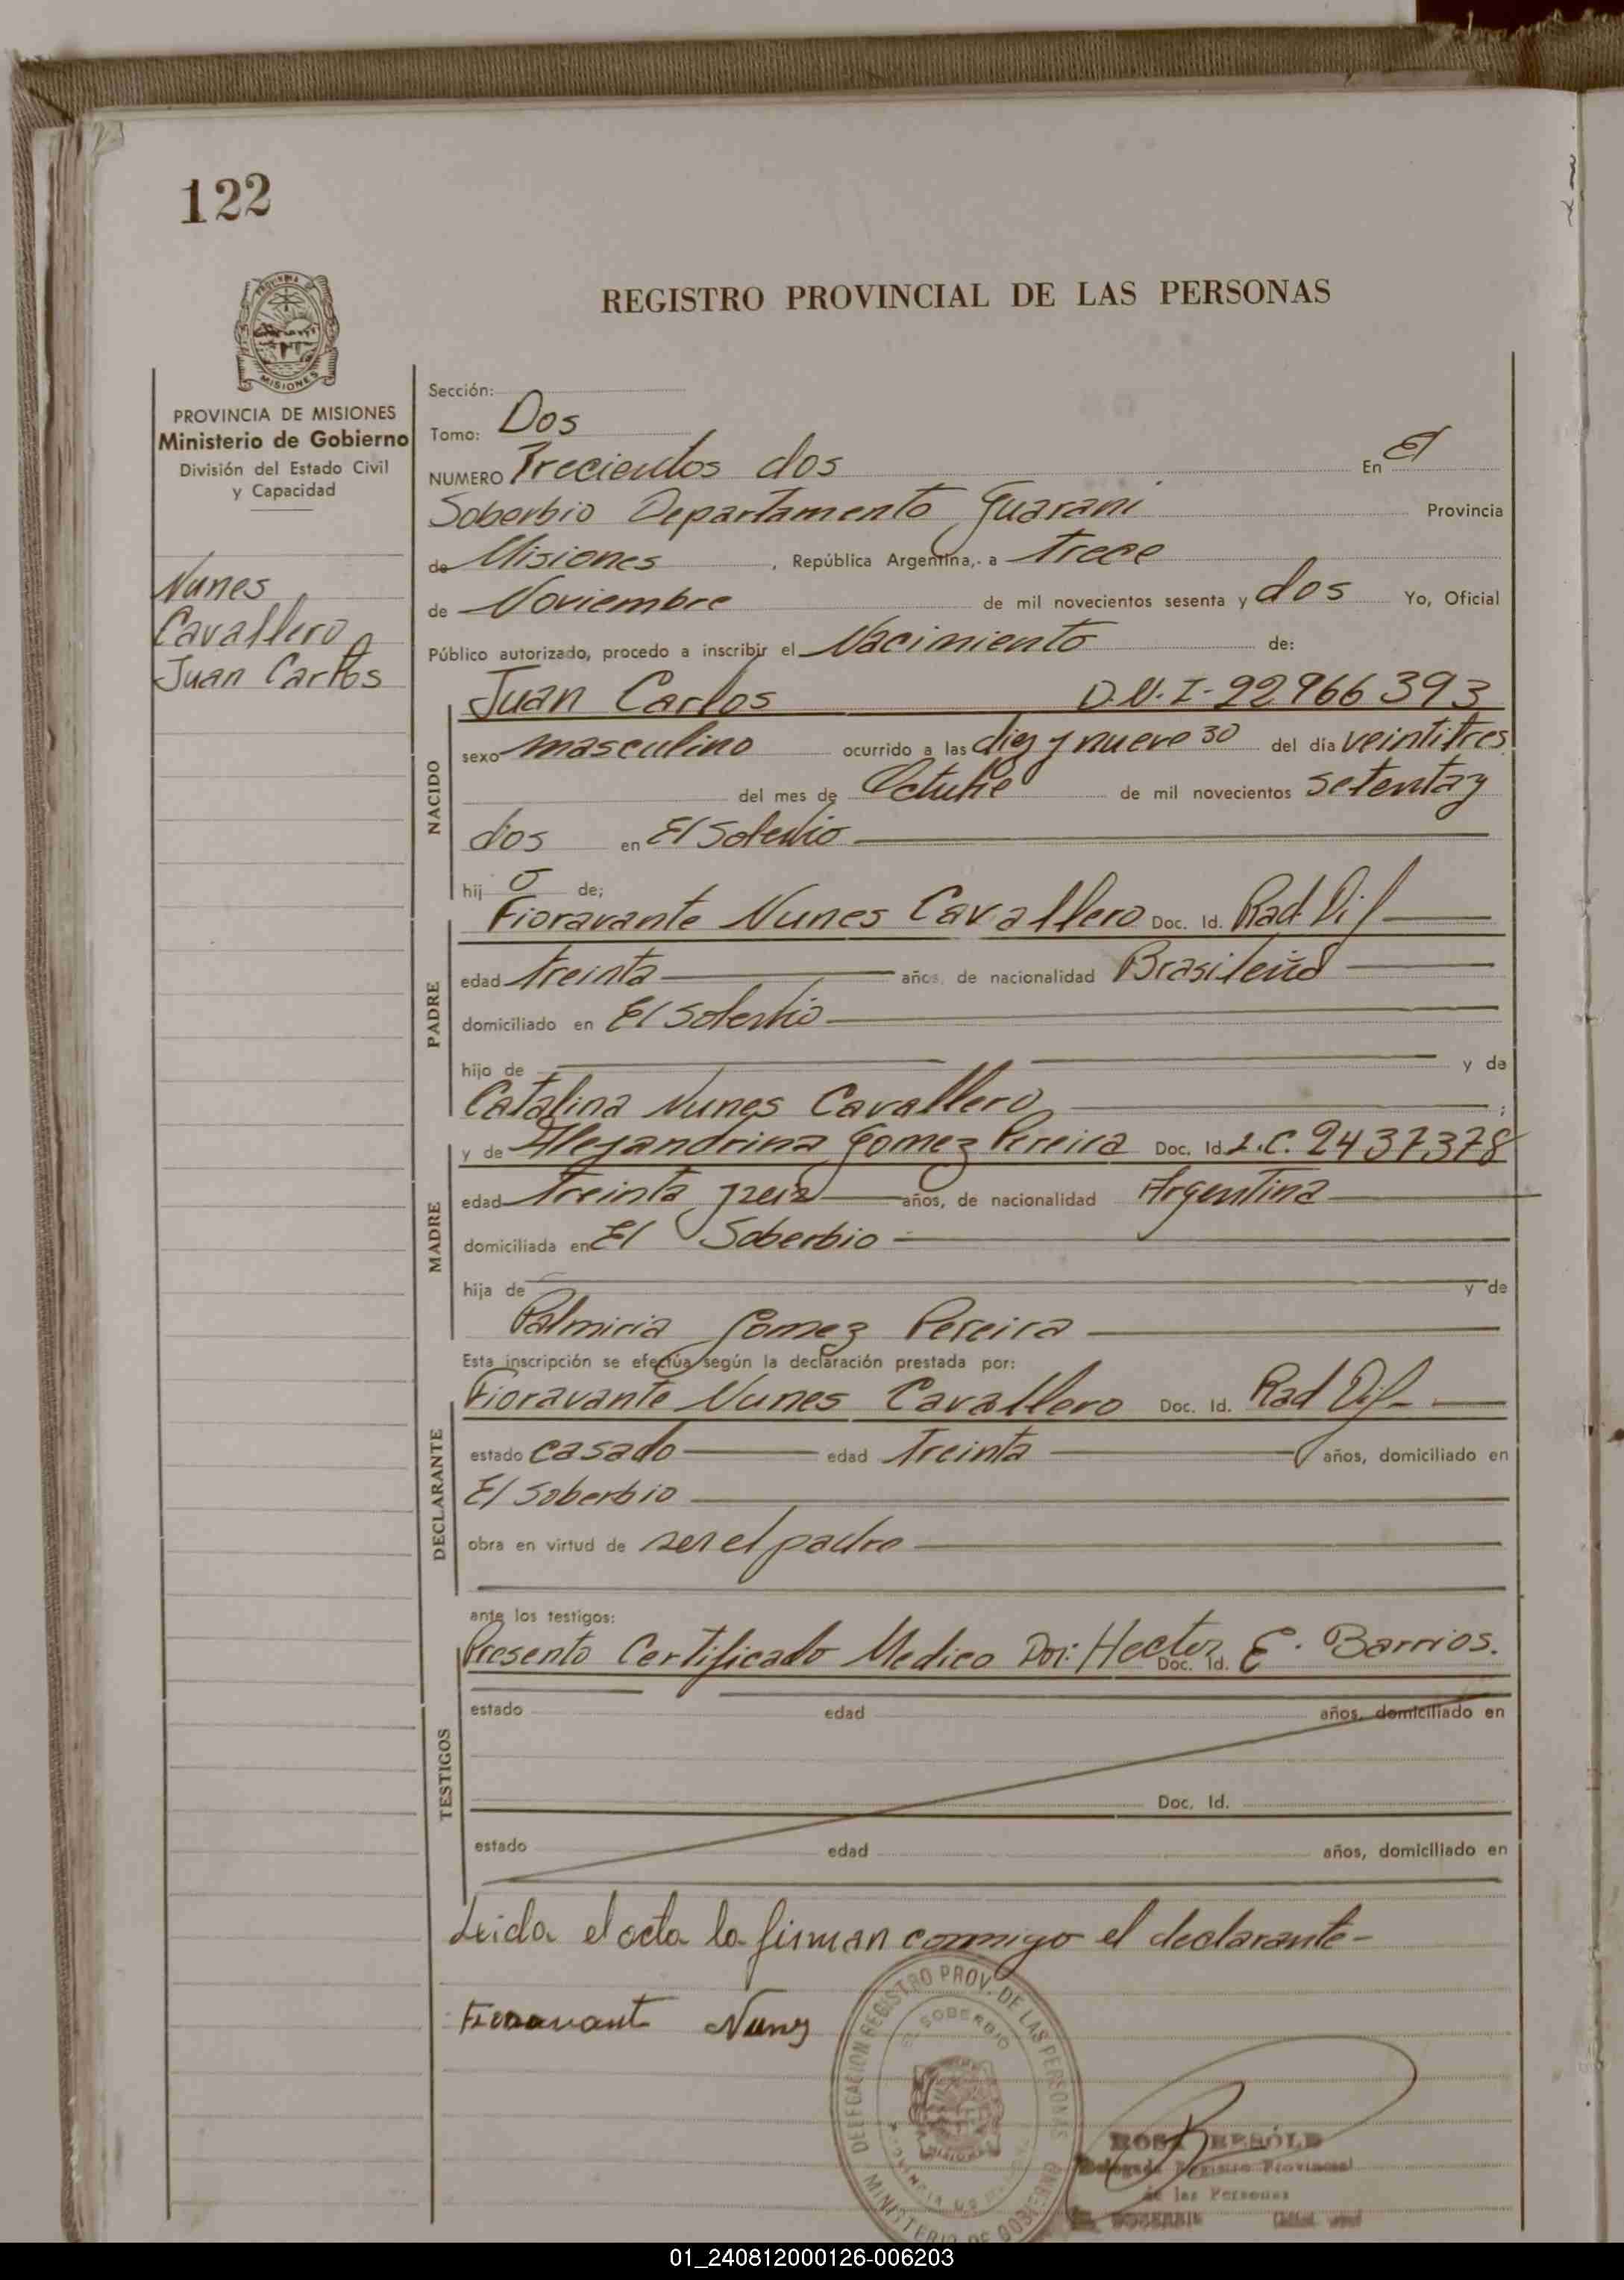 122
REGISTRO PROVINCIAL DE LAS PERSONAS
PROVINCIA DE MISIONES
Ministerio de Gobierno
División del Estado Civil
y Capacidad
Nunes
Cavallero
Juan Carlos
Sección:
Tomo: Dos
NUMERO Trecientos dos En El
Soberbio Departamento Guarani Provincia
de Misiones, República Argentina, a trece
de Noviembre de mil novecientos sesenta y dos Yo, Oficial
Público autorizado, procedo a inscribir el Nacimiento de:
Juan Carlos D.N.I-22966393
NACIDO
sexo masculino ocurrido a las diez y nueve 30 del día veintitres
del mes de Octubre de mil novecientos setenta y
dos en El Soberbio
hij o de;
Fioravante Nunes Cavallero Doc. Id. Rad. Dif
PADRE
edad treinta años, de nacionalidad Brasileña
domiciliado en El Soberbio
hijo de y de
Catalina Nunes Cavallero ;
y de Alejandrina Gomez Pereira Doc. Id L.C. 2437378
MADRE
edad treinta años, de nacionalidad Argentina
domiciliada en El Soberbio
hija de y de
Palmiria Gomez Pereira
Esta inscripción se efectúa según la declaración prestada por:
Fioravante Nunes Cavallero Doc. Id. Rad Dif-
DECLARANTE
estado casado edad treinta años, domiciliado en
El Soberbio
obra en virtud de ser el padre
ante los testigos:
Presento Certificado Medico Por: Hector E. Barrios.
Doc. Id.
TESTIGOS
estado edad años, domiciliado en
Doc. Id.
estado edad años, domiciliado en
Leida el acta la firman conmigo el declarante-
Fioravante Nunes
DELEGACION REGISTRO PROV. DE LAS PERSONAS
EL SOBERBIO
PROVINCIA DE MISIONES
MINISTERIO DE GOBIERNO
ROSA BESOLD
Delegada Registro Provincial
de las Personas
01_240812000126-006203